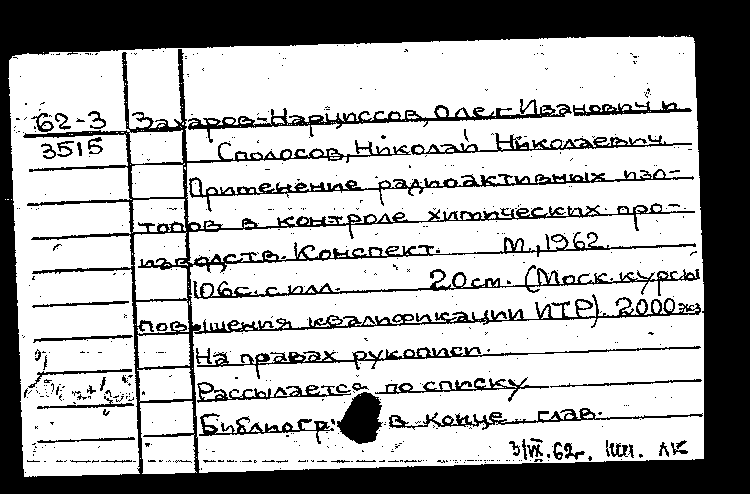 62-3 Захаров-Нарциссов, Олег Иванович и
3515 Сполосов, Николай Николаевич.
Применение радиоактивных изо-
топов в контроле химических про-
изводств. Конспект. М., 1962.
106с. с илл. 20см. (Моск. курсы
повышения квалификации ИТР). 2000 экз.
На правах рукописи.
Рассылается по списку
Библиогр. в конце глав.
62г.